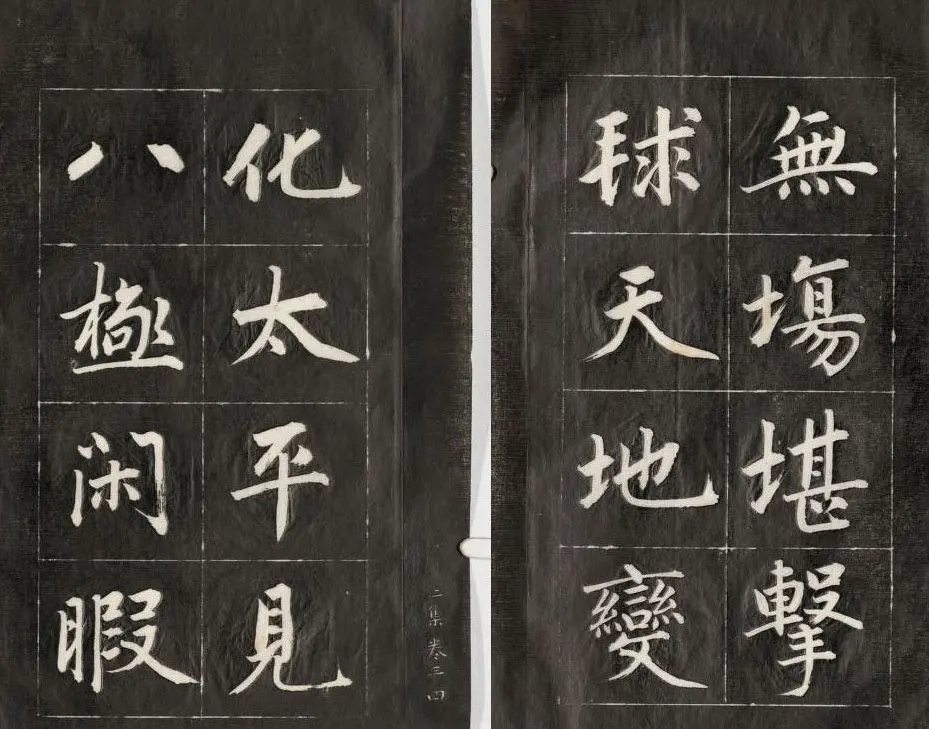 無塲堪擊
球天地變
化太平見
八極閑暇
二集 卷三 四